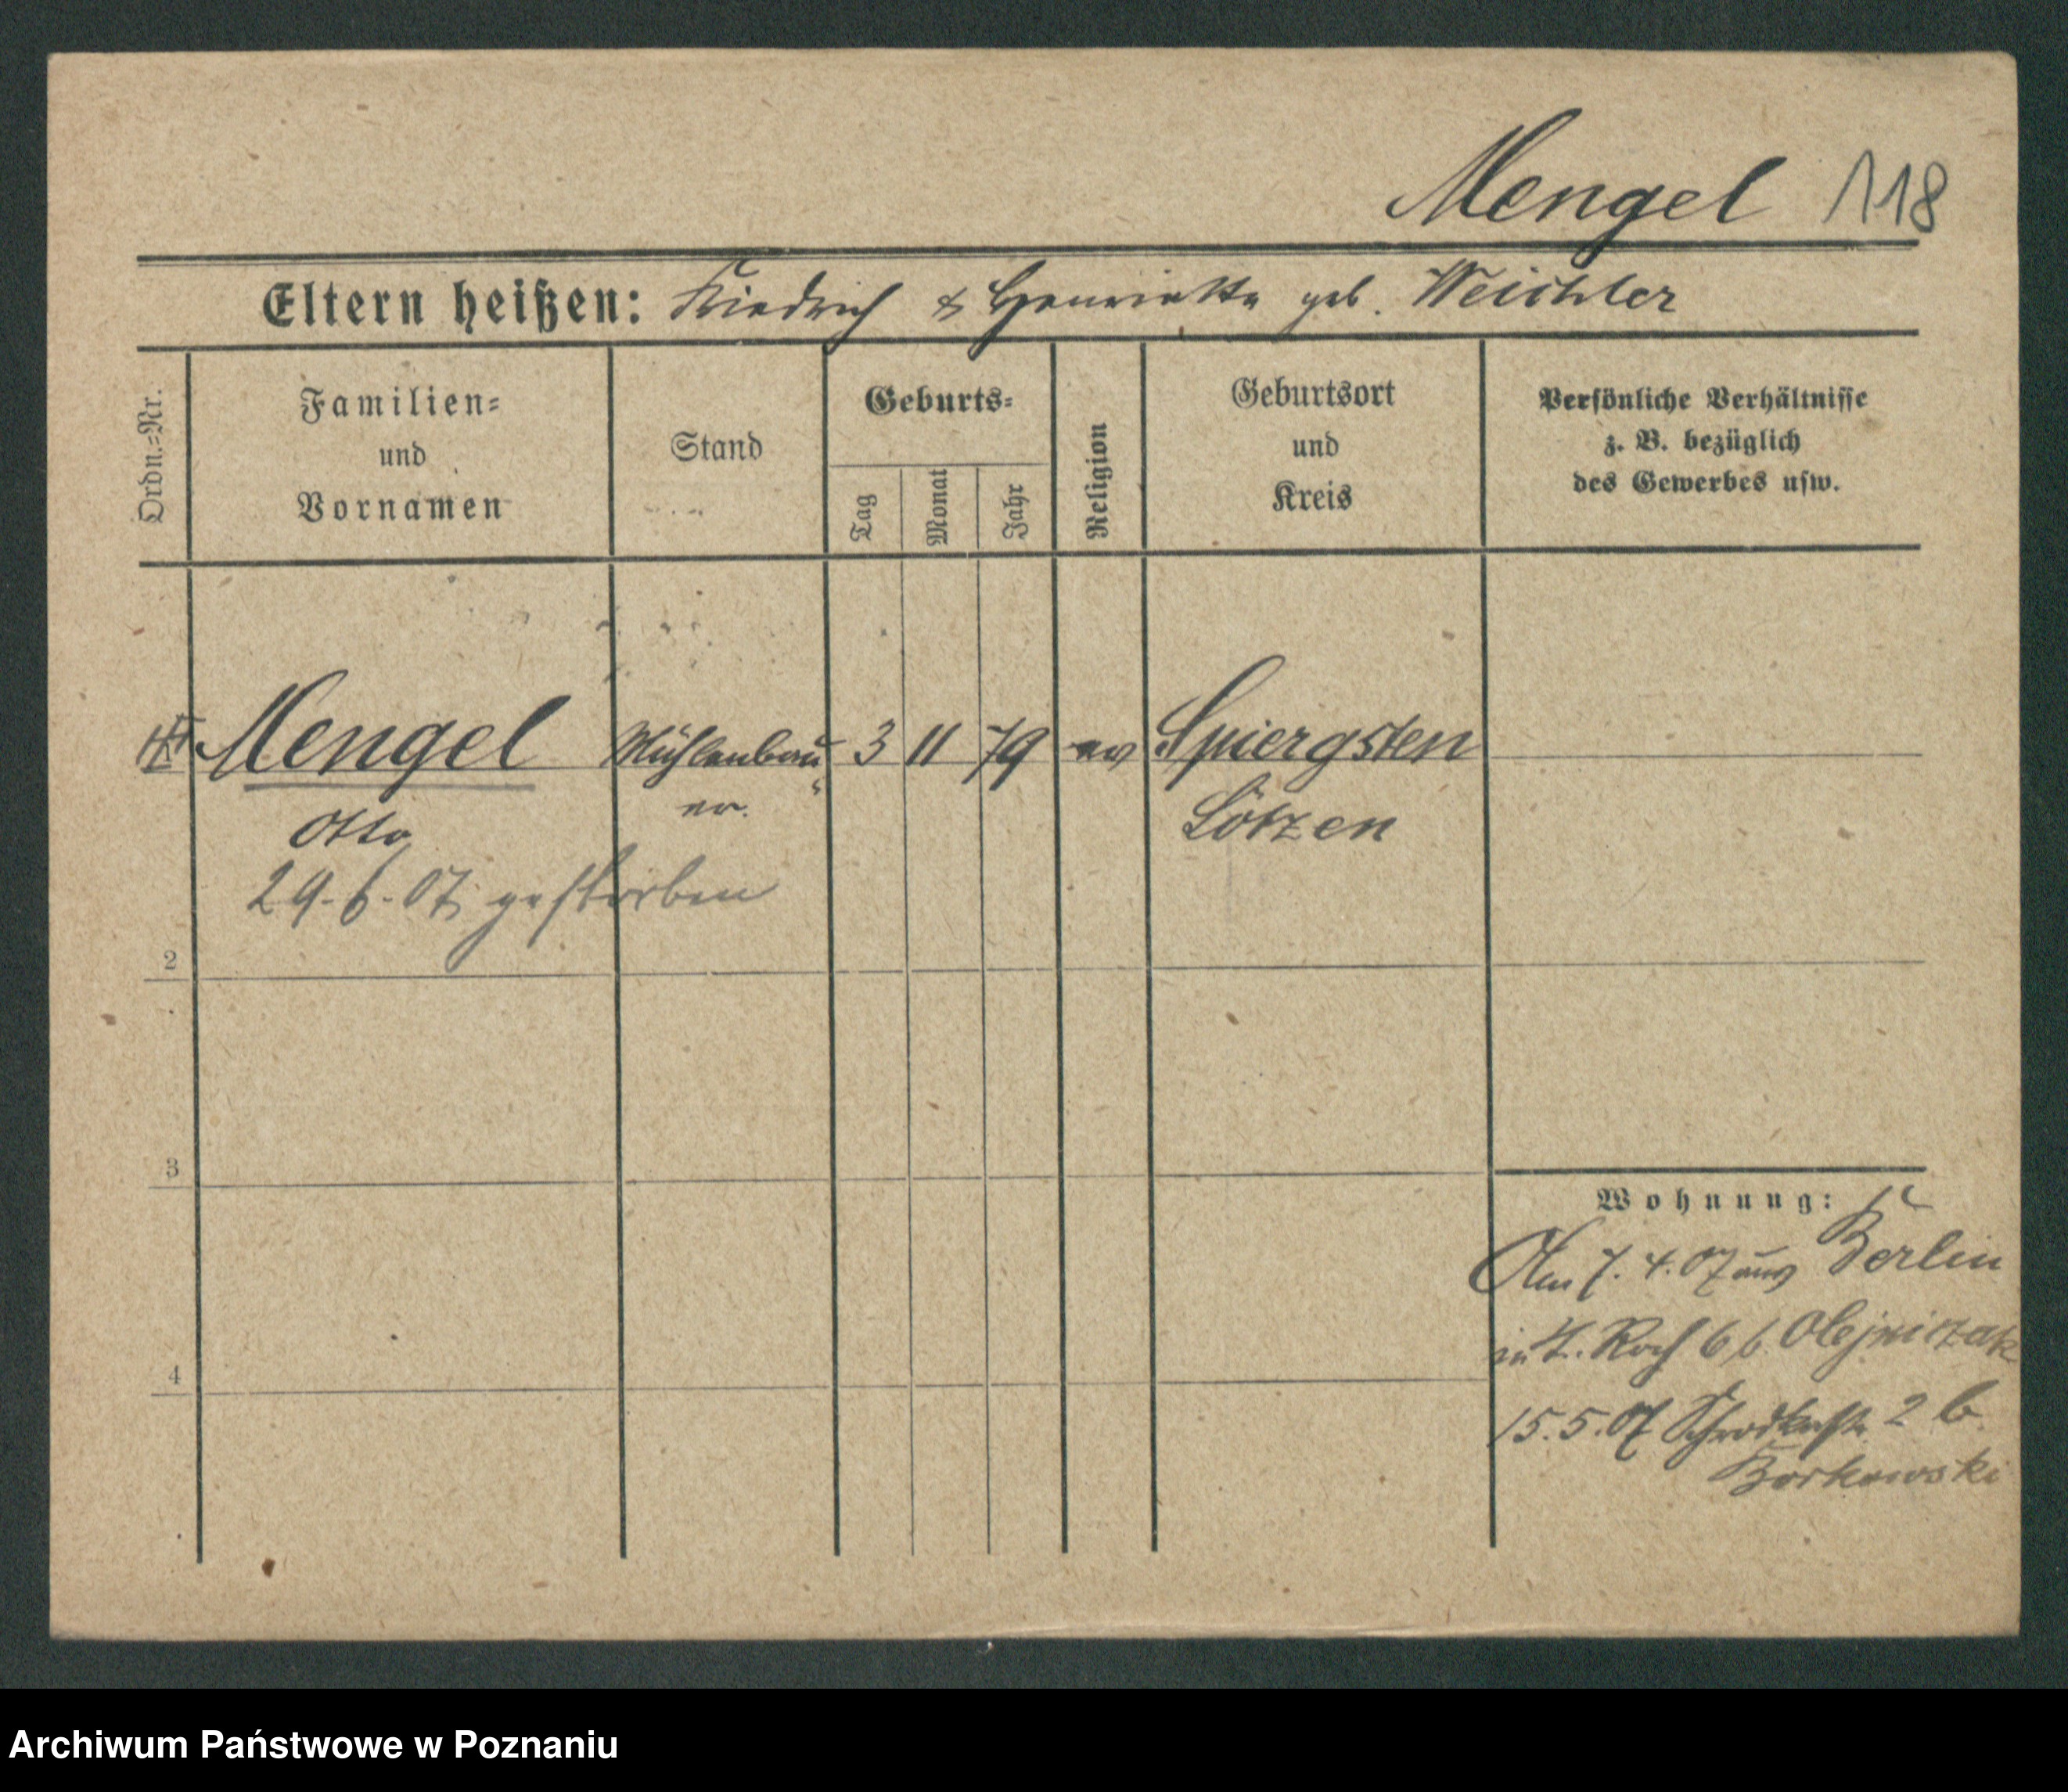 Mengel 118
Eltern heißen: Friedrich & Henriette geb. Weichler
Ordn.=Nr.
Familien=
und
Vornamen
Stand
Geburts=
Tag
Monat
Jahr
Religion
Geburtsort
und
Kreis
Persönliche Verhältnisse
z. B. bezüglich
des Gewerbes usw.
Mengel Mühlenbau 3 11 79 ev Spiergsten
Otto er. Lötzen
29.6.07 gestorben
2
3
4
Wohnung:
Am 7.4.07 aus Berlin
in Roch 6 b. Olejniczak
15.5.07 2 b.
Borkowski
Archiwum Państwowe w Poznaniu